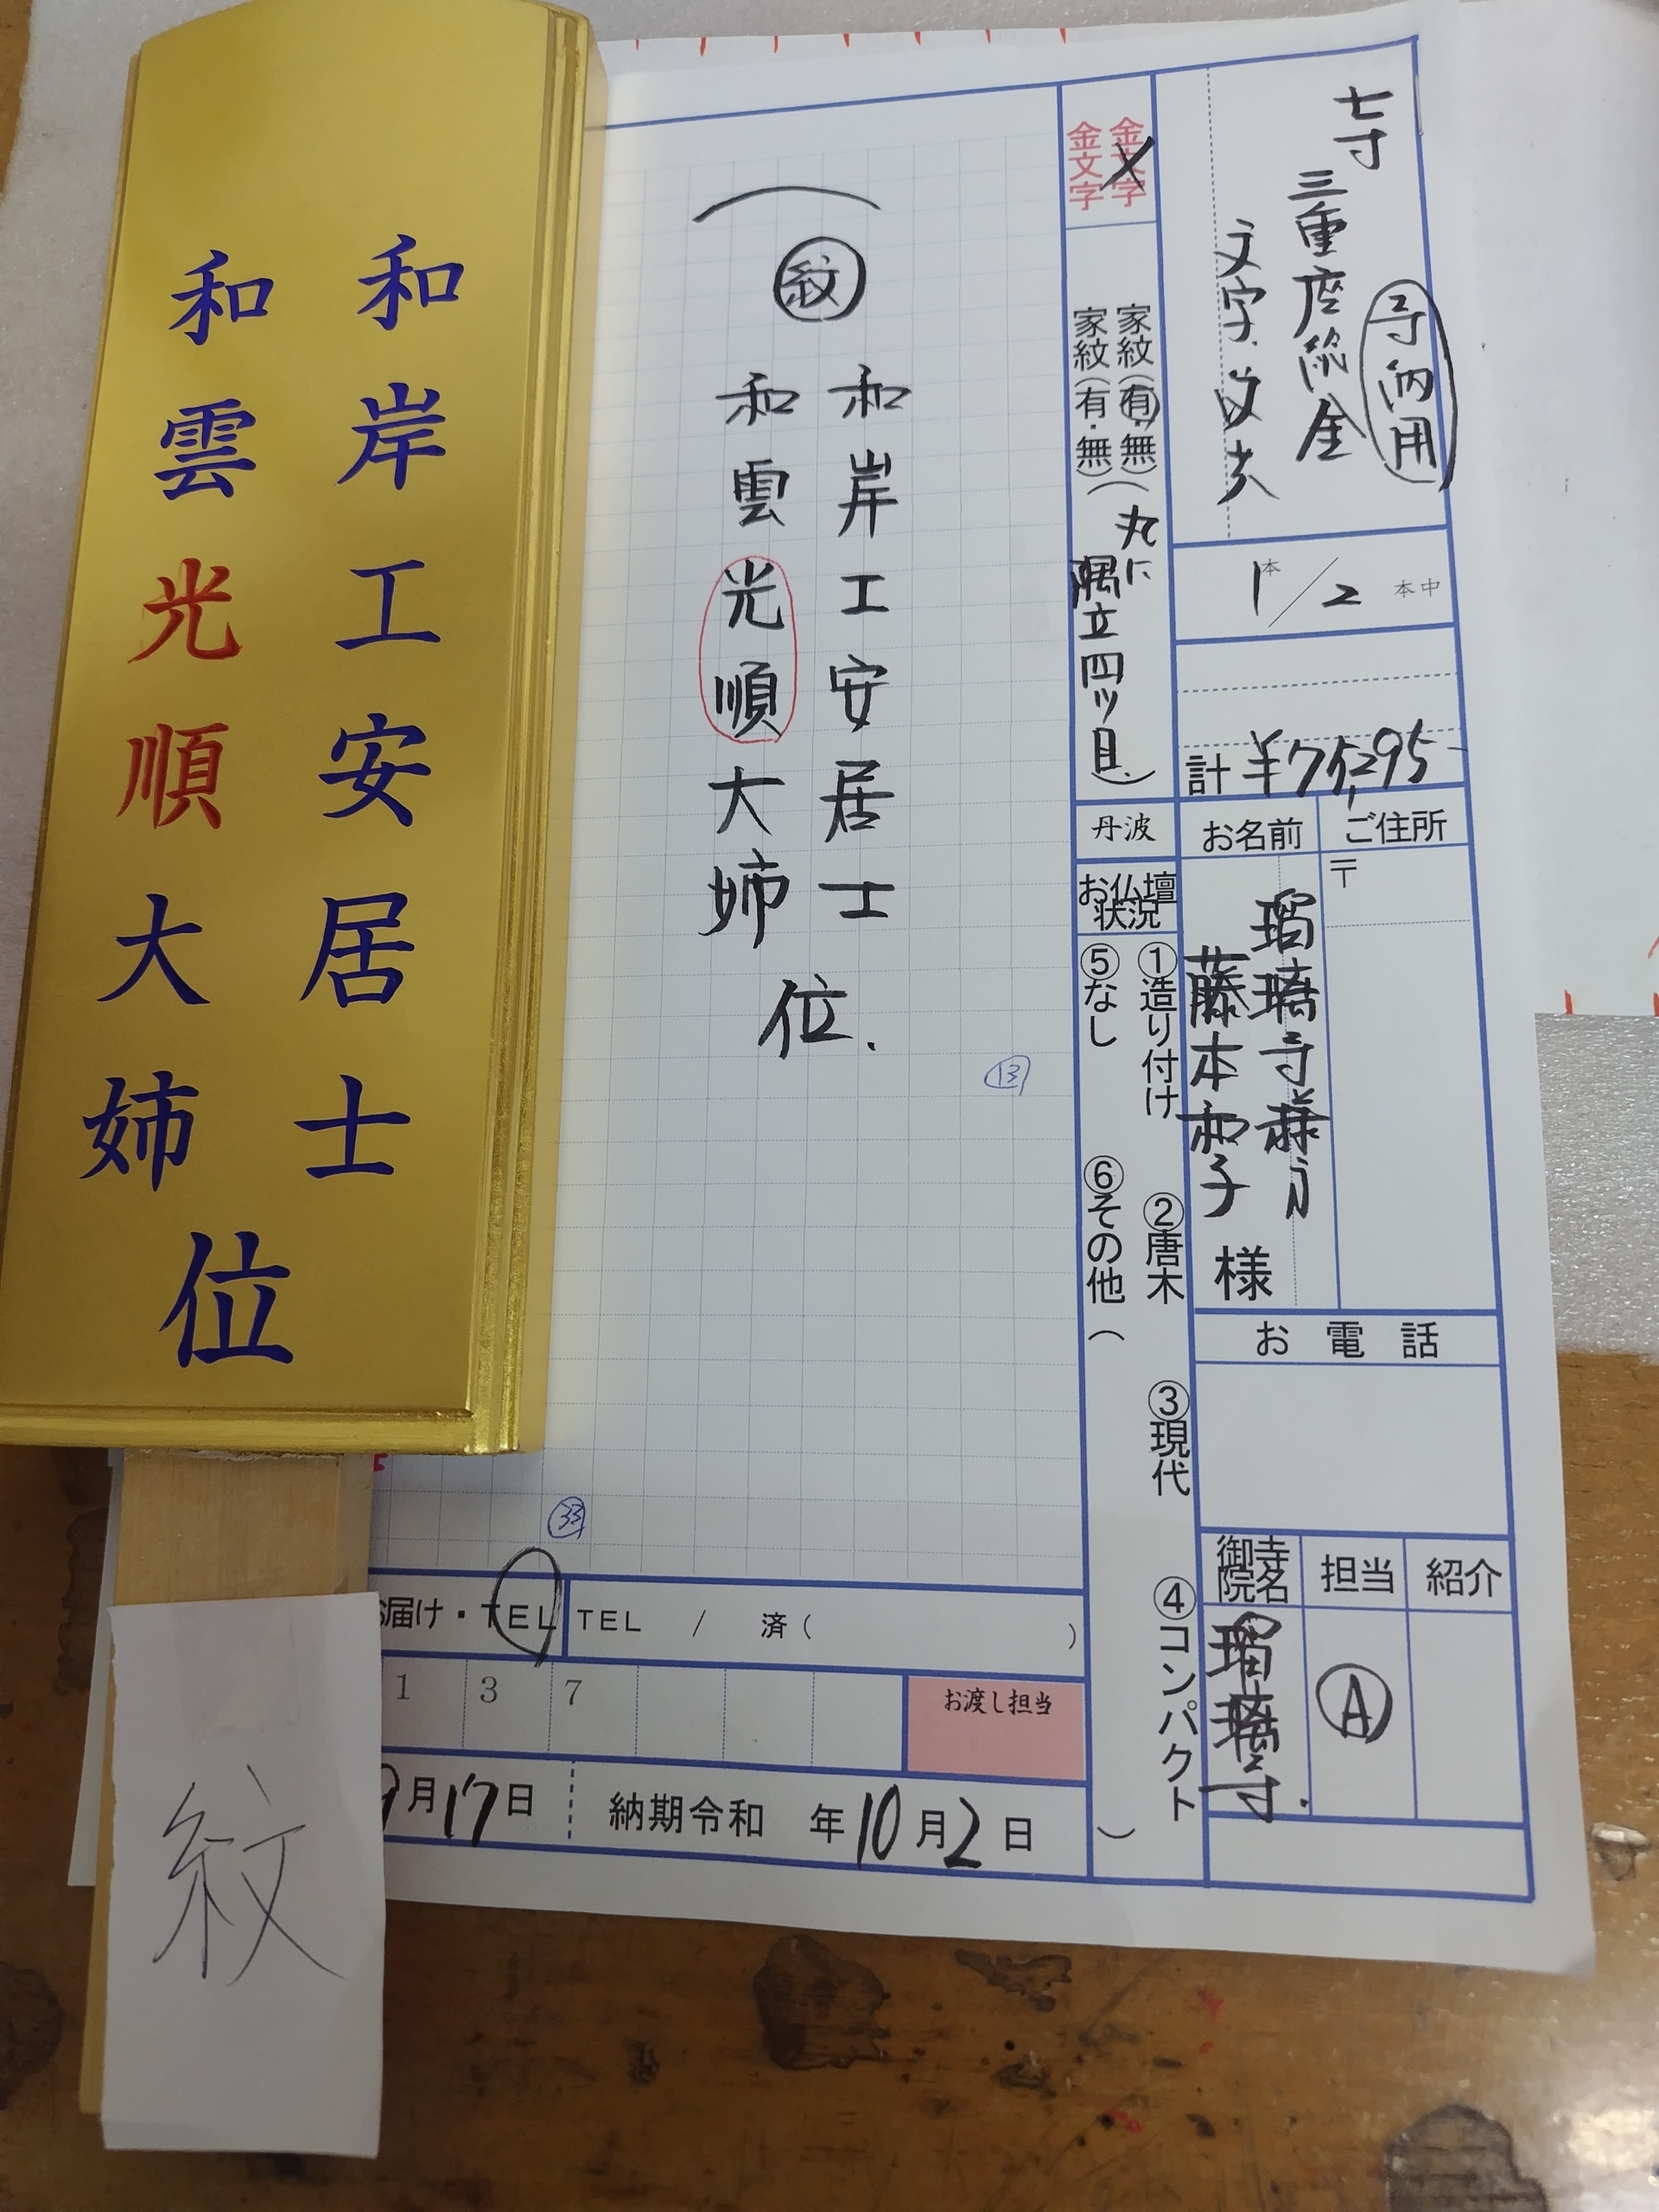 七寸
寺納用
三重座総金
文字
1本/2本中
計 ¥75,295-
ご住所
〒
お名前
瑠璃寺様方
藤本和子
様
お電話
御寺院名
瑠璃寺.
担当
A
紹介
金文字
金文字
家紋(有・無)(丸に
家紋(有・無)
隅立四ッ目.)
丹波
お仏壇状況
①造り付け ②唐木 ③現代 ④コンパクト
⑤なし ⑥その他( )
紋
和岸工安居士
和雲光順大姉
位.
13
33
お届け・TEL
TEL / 済( )
1 3 7
お渡し担当
9月17日
納期令和 年10月2日
和岸工安居士
和雲光順大姉
位
紋